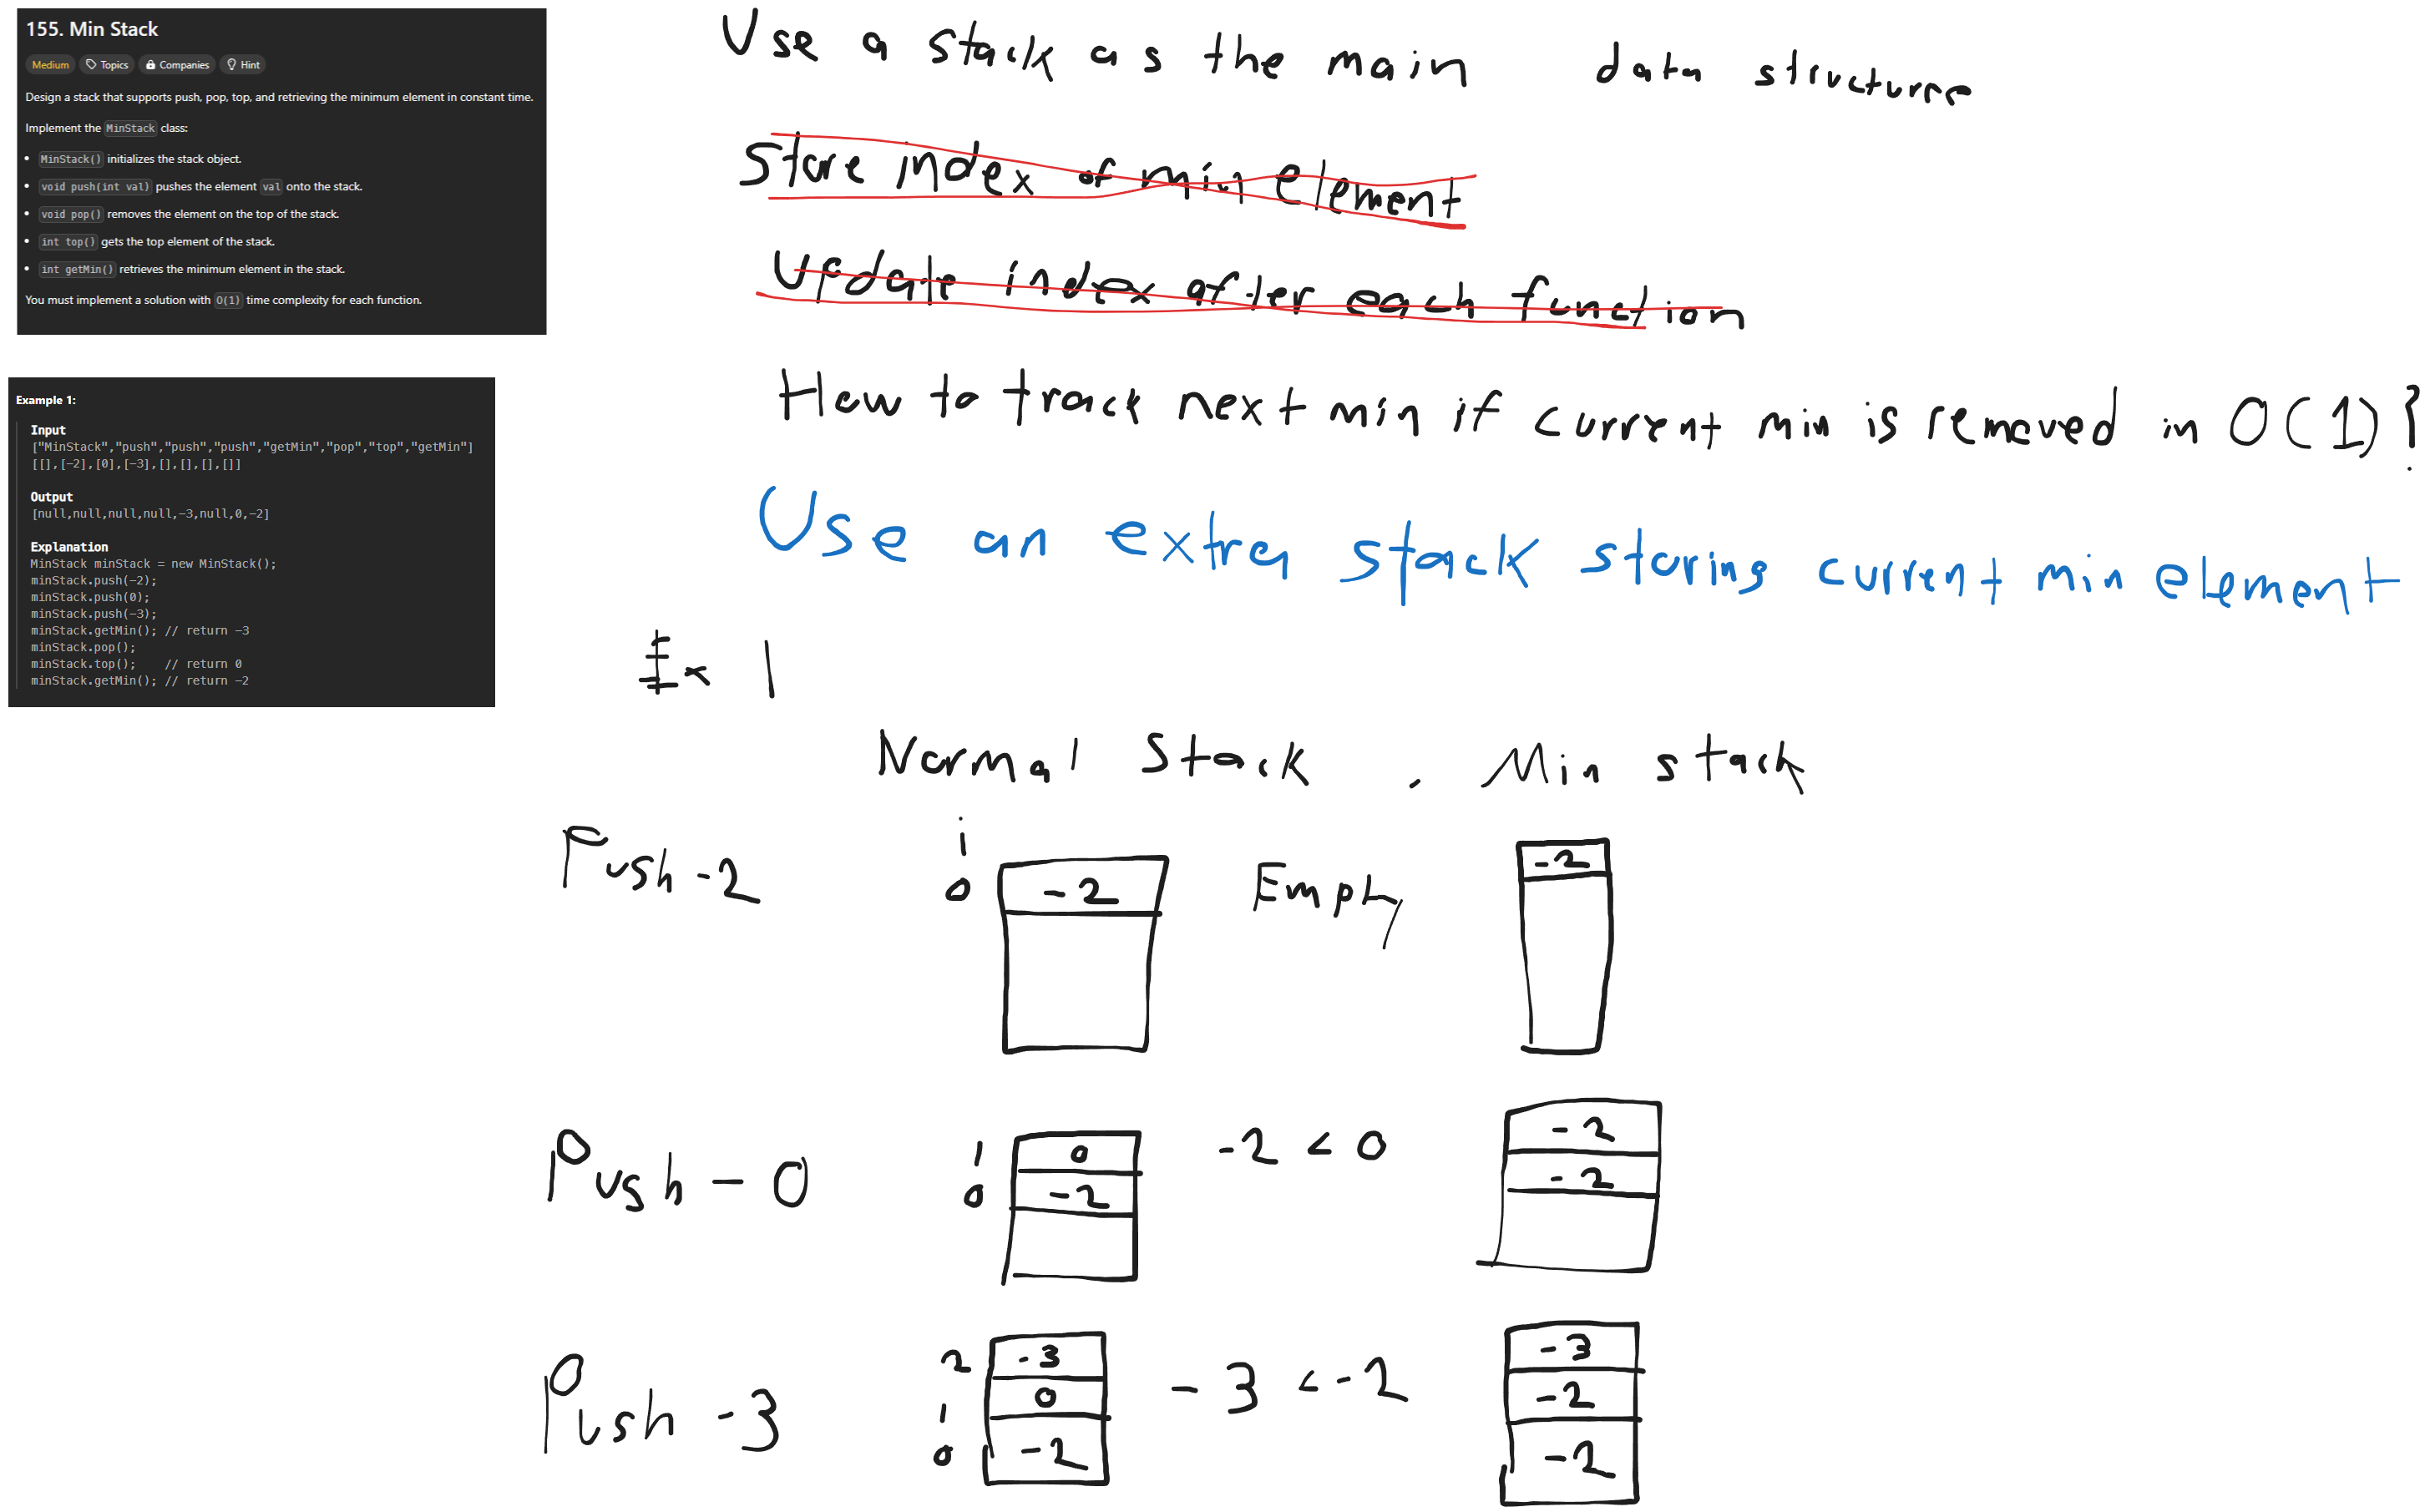 155. Min Stack
Medium Topics Companies Hint
Design a stack that supports push, pop, top, and retrieving the minimum element in constant time.
Implement the MinStack class:
• MinStack() initializes the stack object.
• void push(int val) pushes the element val onto the stack.
• void pop() removes the element on the top of the stack.
• int top() gets the top element of the stack.
• int getMin() retrieves the minimum element in the stack.
You must implement a solution with O(1) time complexity for each function.
Example 1:
Input
["MinStack","push","push","push","getMin","pop","top","getMin"]
[[],[-2],[0],[-3],[],[],[],[]]
Output
[null,null,null,null,-3,null,0,-2]
Explanation
MinStack minStack = new MinStack();
minStack.push(-2);
minStack.push(0);
minStack.push(-3);
minStack.getMin(); // return -3
minStack.pop();
minStack.top();    // return 0
minStack.getMin(); // return -2
Use a stack as the main data structure
Store index of min element
Update index after each function
How to track next min if current min is removed in O(1)?
Use an extra stack storing current min element
Ex 1
Normal Stack . Min stack
i
Push -2 0 -2 Empty -2
Push - 0 1 0 -2 < 0 -2
0 -2 -2
Push -3 2 -3 -3 < -2 -3
1 0 -2
0 -2 -2